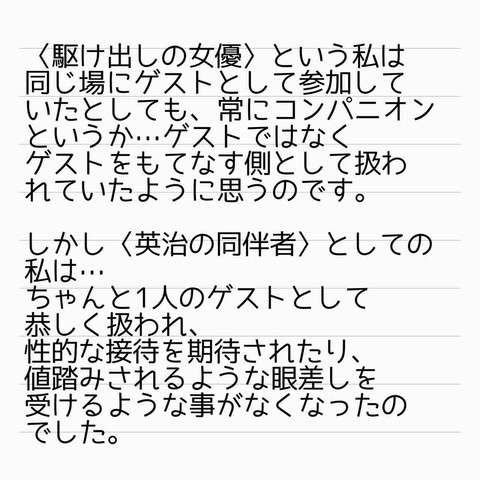 〈駆け出しの女優〉という私は
同じ場にゲストとして参加して
いたとしても、常にコンパニオン
というか…ゲストではなく
ゲストをもてなす側として扱わ
れていたように思うのです。
しかし〈英治の同伴者〉としての
私は…
ちゃんと1人のゲストとして
恭しく扱われ、
性的な接待を期待されたり、
値踏みされるような眼差しを
受けるような事がなくなったの
でした。